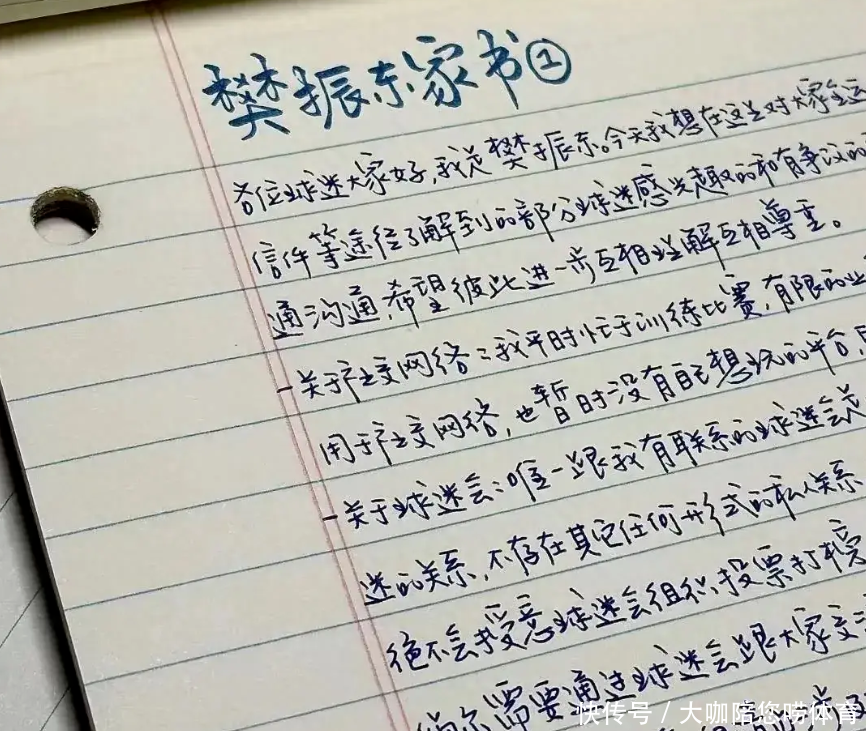 樊振东家书①
各位球迷大家好,我是樊振东。今天我想在这里对大家
信件等途径了解到的部分球迷感兴趣的和有争议的
通沟通,希望彼此进一步互相理解互相尊重。
-关于社交网络:我平时忙于训练比赛,有限的业
用于社交网络,也暂时没有自己想玩的平台
-关于球迷会:唯一跟我有联系的球迷会
迷的关系,不存在其它任何形式的私人关系
绝不会授意球迷会组织投票打榜
需要通过球迷会跟大家交
快传号 / 大咖陪您唠体育